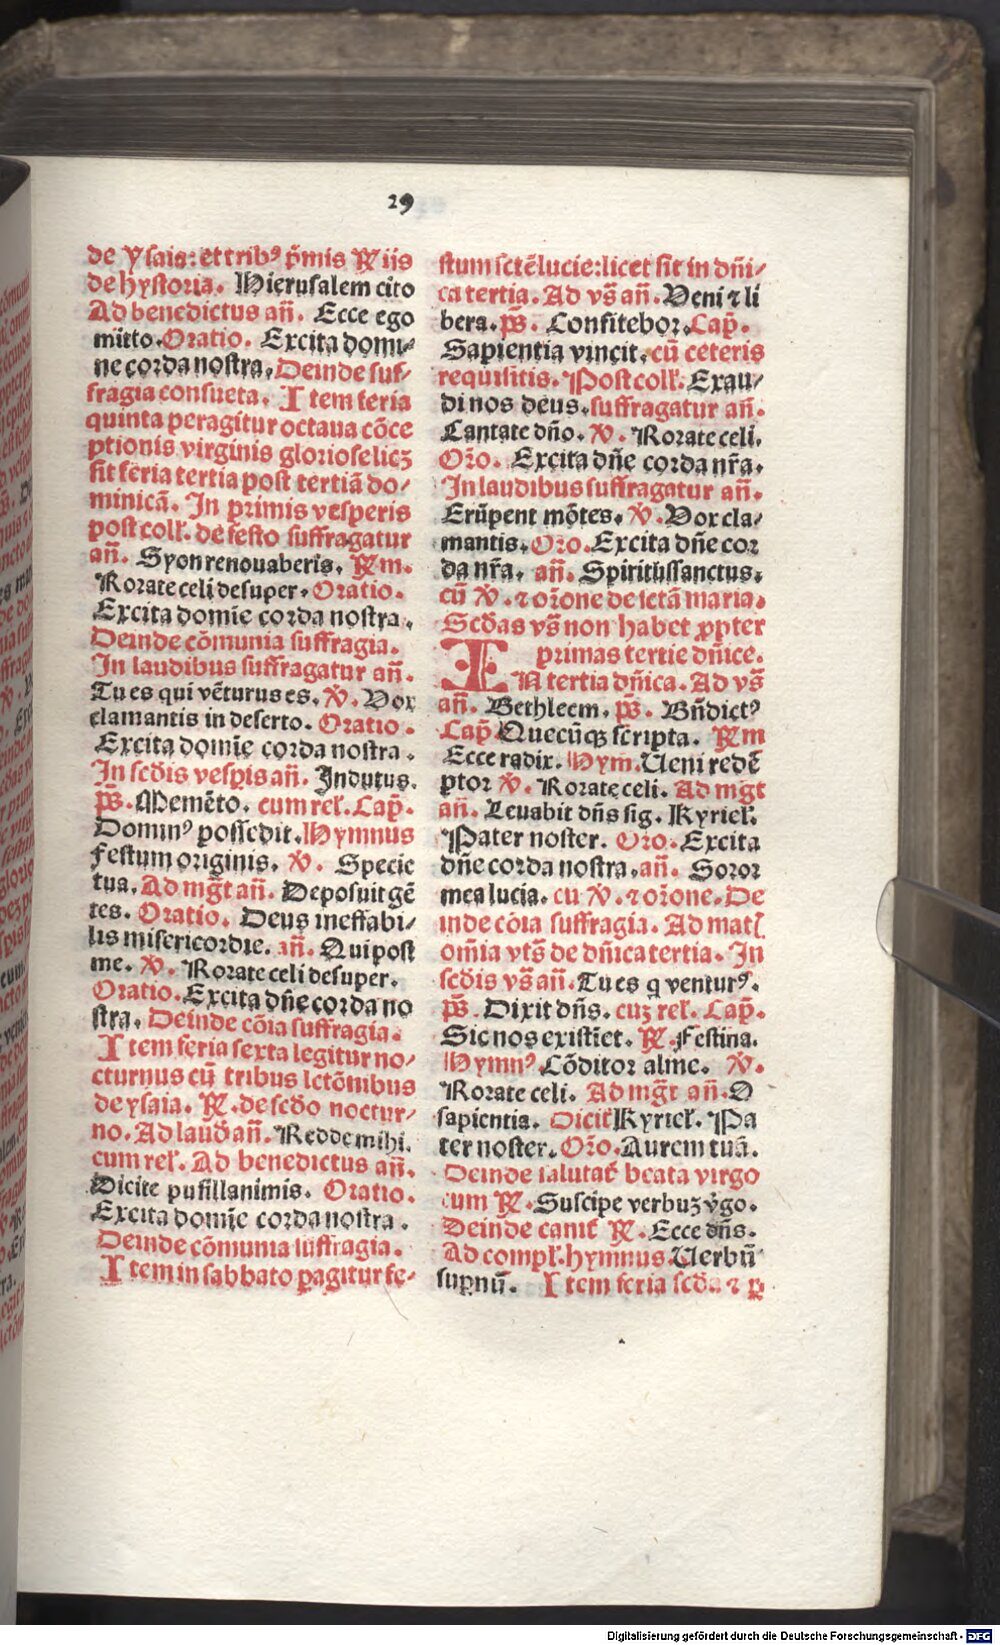 29
de Ysaia: et tribꝰ p̄mis ℟iis
de hystoria. Hierusalem cito
Ad benedictus añ. Ecce ego
mitto. Oratio. Excita domi⸗
ne corda nostra. Deinde suf⸗
fragia consueta. Item feria
quinta peragitur octaua cōce
ptionis virginis gloriose licꝫ
sit feria tertia post tertiā do⸗
minicā. In primis vesperis
post coll̃. de festo suffragatur
añ. Syon renouaberis. ℟m.
Rorate celi desuper. Oratio.
Excita domīe corda nostra.
Deinde cōmunia suffragia.
In laudibus suffragatur añ.
Tu es qui vēturus es. ℣. Vox
clamantis in deserto. Oratio.
Excita domīe corda nostra.
In scd̄is vesꝑis añ. Indutus.
p̄s. Memēto. cum rel̃. Cap̄.
Dominꝰ possedit. Hymnus
Festum originis. ℣. Specie
tua. Ad mg̃t añ. Deposuit gē
tes. Oratio. Deus ineffabi⸗
lis misericordie. añ. Qui post
me. ℣. Rorate celi desuper.
Oratio. Excita dñe corda no
stra. Deinde cōia suffragia.
Item feria sexta legitur no⸗
cturnus cū tribus lctōnibus
de ysaia. ℟. de scd̄o noctur⸗
no. Ad laud̄ añ. Redde mihi.
cum rel̃. Ad benedictus añ.
Dicite pusillanimis. Oratio.
Excita domīe corda nostra.
Deinde cōmunia suffragia.
Item in sabbato ꝑagitur fe⸗
stum scte lucie: licet sit in dñi⸗
ca tertia. Ad vs̄ añ. Veni ⁊ li
bera. p̄s. Confitebor. Cap̄.
Sapientia vincit. cū ceteris
requisitis. Post coll̃. Exau⸗
di nos deus. suffragatur añ.
Cantate dño. ℣. Rorate celi.
Oro. Excita dñe corda nr̄a.
In laudibus suffragatur añ.
Erūpent mōtes. ℣. Vox cla⸗
mantis. Oro. Excita dñe cor
da nr̄a. añ. Spiritussanctus.
cū ℣. ⁊ orōne de sctā maria.
Scd̄as vs̄ non habet ꝓpter
primas tertie dñice.
IN tertia dñica. Ad vs̄
añ. Bethleem. p̄s. Bñdictꝰ
Cap̄ Quecūqꝫ scripta. ℟m
Ecce radix. Hym. Ueni redē
ptor ℣. Rorate celi. Ad mg̃t
añ. Leuabit dñs sig. Kyriel̃.
Pater noster. Oro. Excita
dñe corda nostra. añ. Soror
mea lucia. cū ℣. ⁊ orōne. De
inde cōia suffragia. Ad matl̃
om̄ia vts̄ de dñica tertia. In
scd̄is vs̄ añ. Tu es q venturꝰ.
p̄s. Dixit dñs. cuꝫ rel̃. Cap̄.
Sic nos existiēt. ℟. Festina.
Hymnꝰ. Cōditor alme. ℣.
Rorate celi. Ad mg̃t añ. O
sapientia. Dicit̃ Kyriel̃. Pa
ter noster. Oro. Aurem tuā.
Deinde salutat̃ beata virgo
cum ℟. Suscipe verbuꝫ v̄go.
Deinde canit̃ ℟. Ecce dñs.
Ad compl̃. hymnus. Uerbū
supnū. Item feria scd̄a ⁊ ꝑ
Digitalisierung gefördert durch die Deutsche Forschungsgemeinschaft - DFG